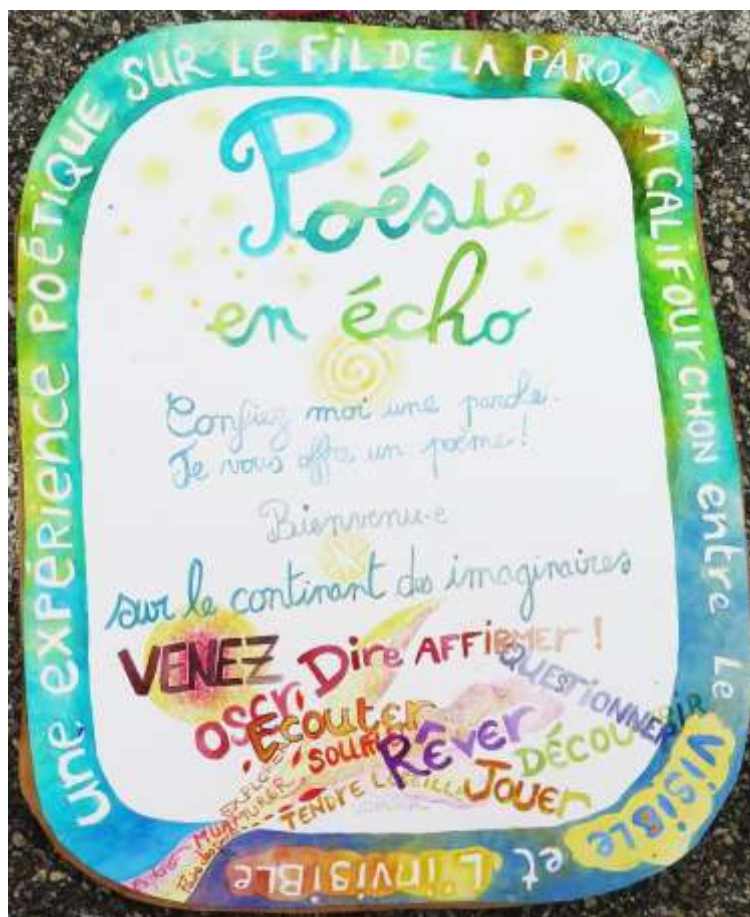 UNE EXPÉRIENCE POÉTIQUE SUR LE FIL DE LA PAROLE A CALIFOURCHON entre Le VISIBLE et L'INVISIBLE
Poésie
en écho
Confiez moi une parole.
Je vous offre un poème!
Bienvenu-e
sur le continant des imaginaires
VENEZ Dire AFFIRMER !
QUESTIONNER
OSER
Écouter
Rêver DÉCOUVRIR
MURMURER
TENDRE
JOUER